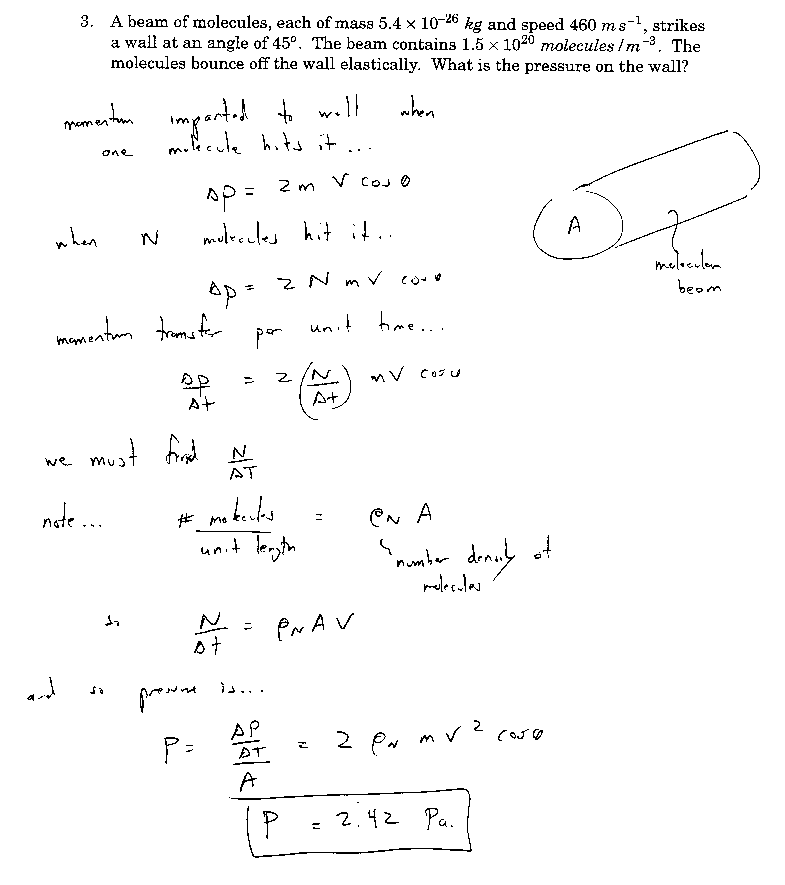 3. A beam of molecules, each of mass 5.4 × 10⁻²⁶ kg and speed 460 m s⁻¹, strikes
a wall at an angle of 45°. The beam contains 1.5 × 10²⁰ molecules / m⁻³. The
molecules bounce off the wall elastically. What is the pressure on the wall?
momentum imparted to wall when
one molecule hits it ...
Δp = 2 m V cos θ
A
when N molecules hit it ..
molecular
beam
Δp = 2 N m V cos θ
momentum transfer per unit time ...
Δp/Δt = 2 (N/Δt) m V cos θ
we must find N/ΔT
note ... # molecules / unit length = ρN A
number density of
molecules
so N/Δt = ρN A V
and so pressure is ...
P = (ΔP/ΔT)/A = 2 ρN m V² cos θ
P = 2.42 Pa.